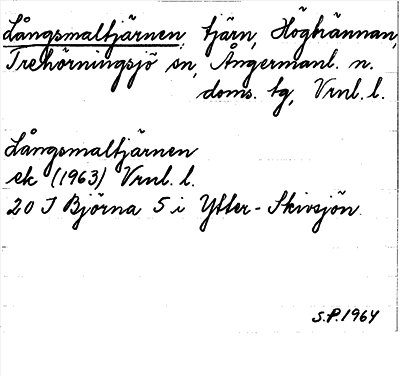 Långsmaltjärnen, tjärn, Höghännan,
Trehörningsjö sn, Ångermanl. n.
doms. tg, Vrnl. l.
Långsmaltjärnen
ek (1963) Vrnl. l.
20 J Björna 5 i Ytter-Skivsjön.
S.P. 1964